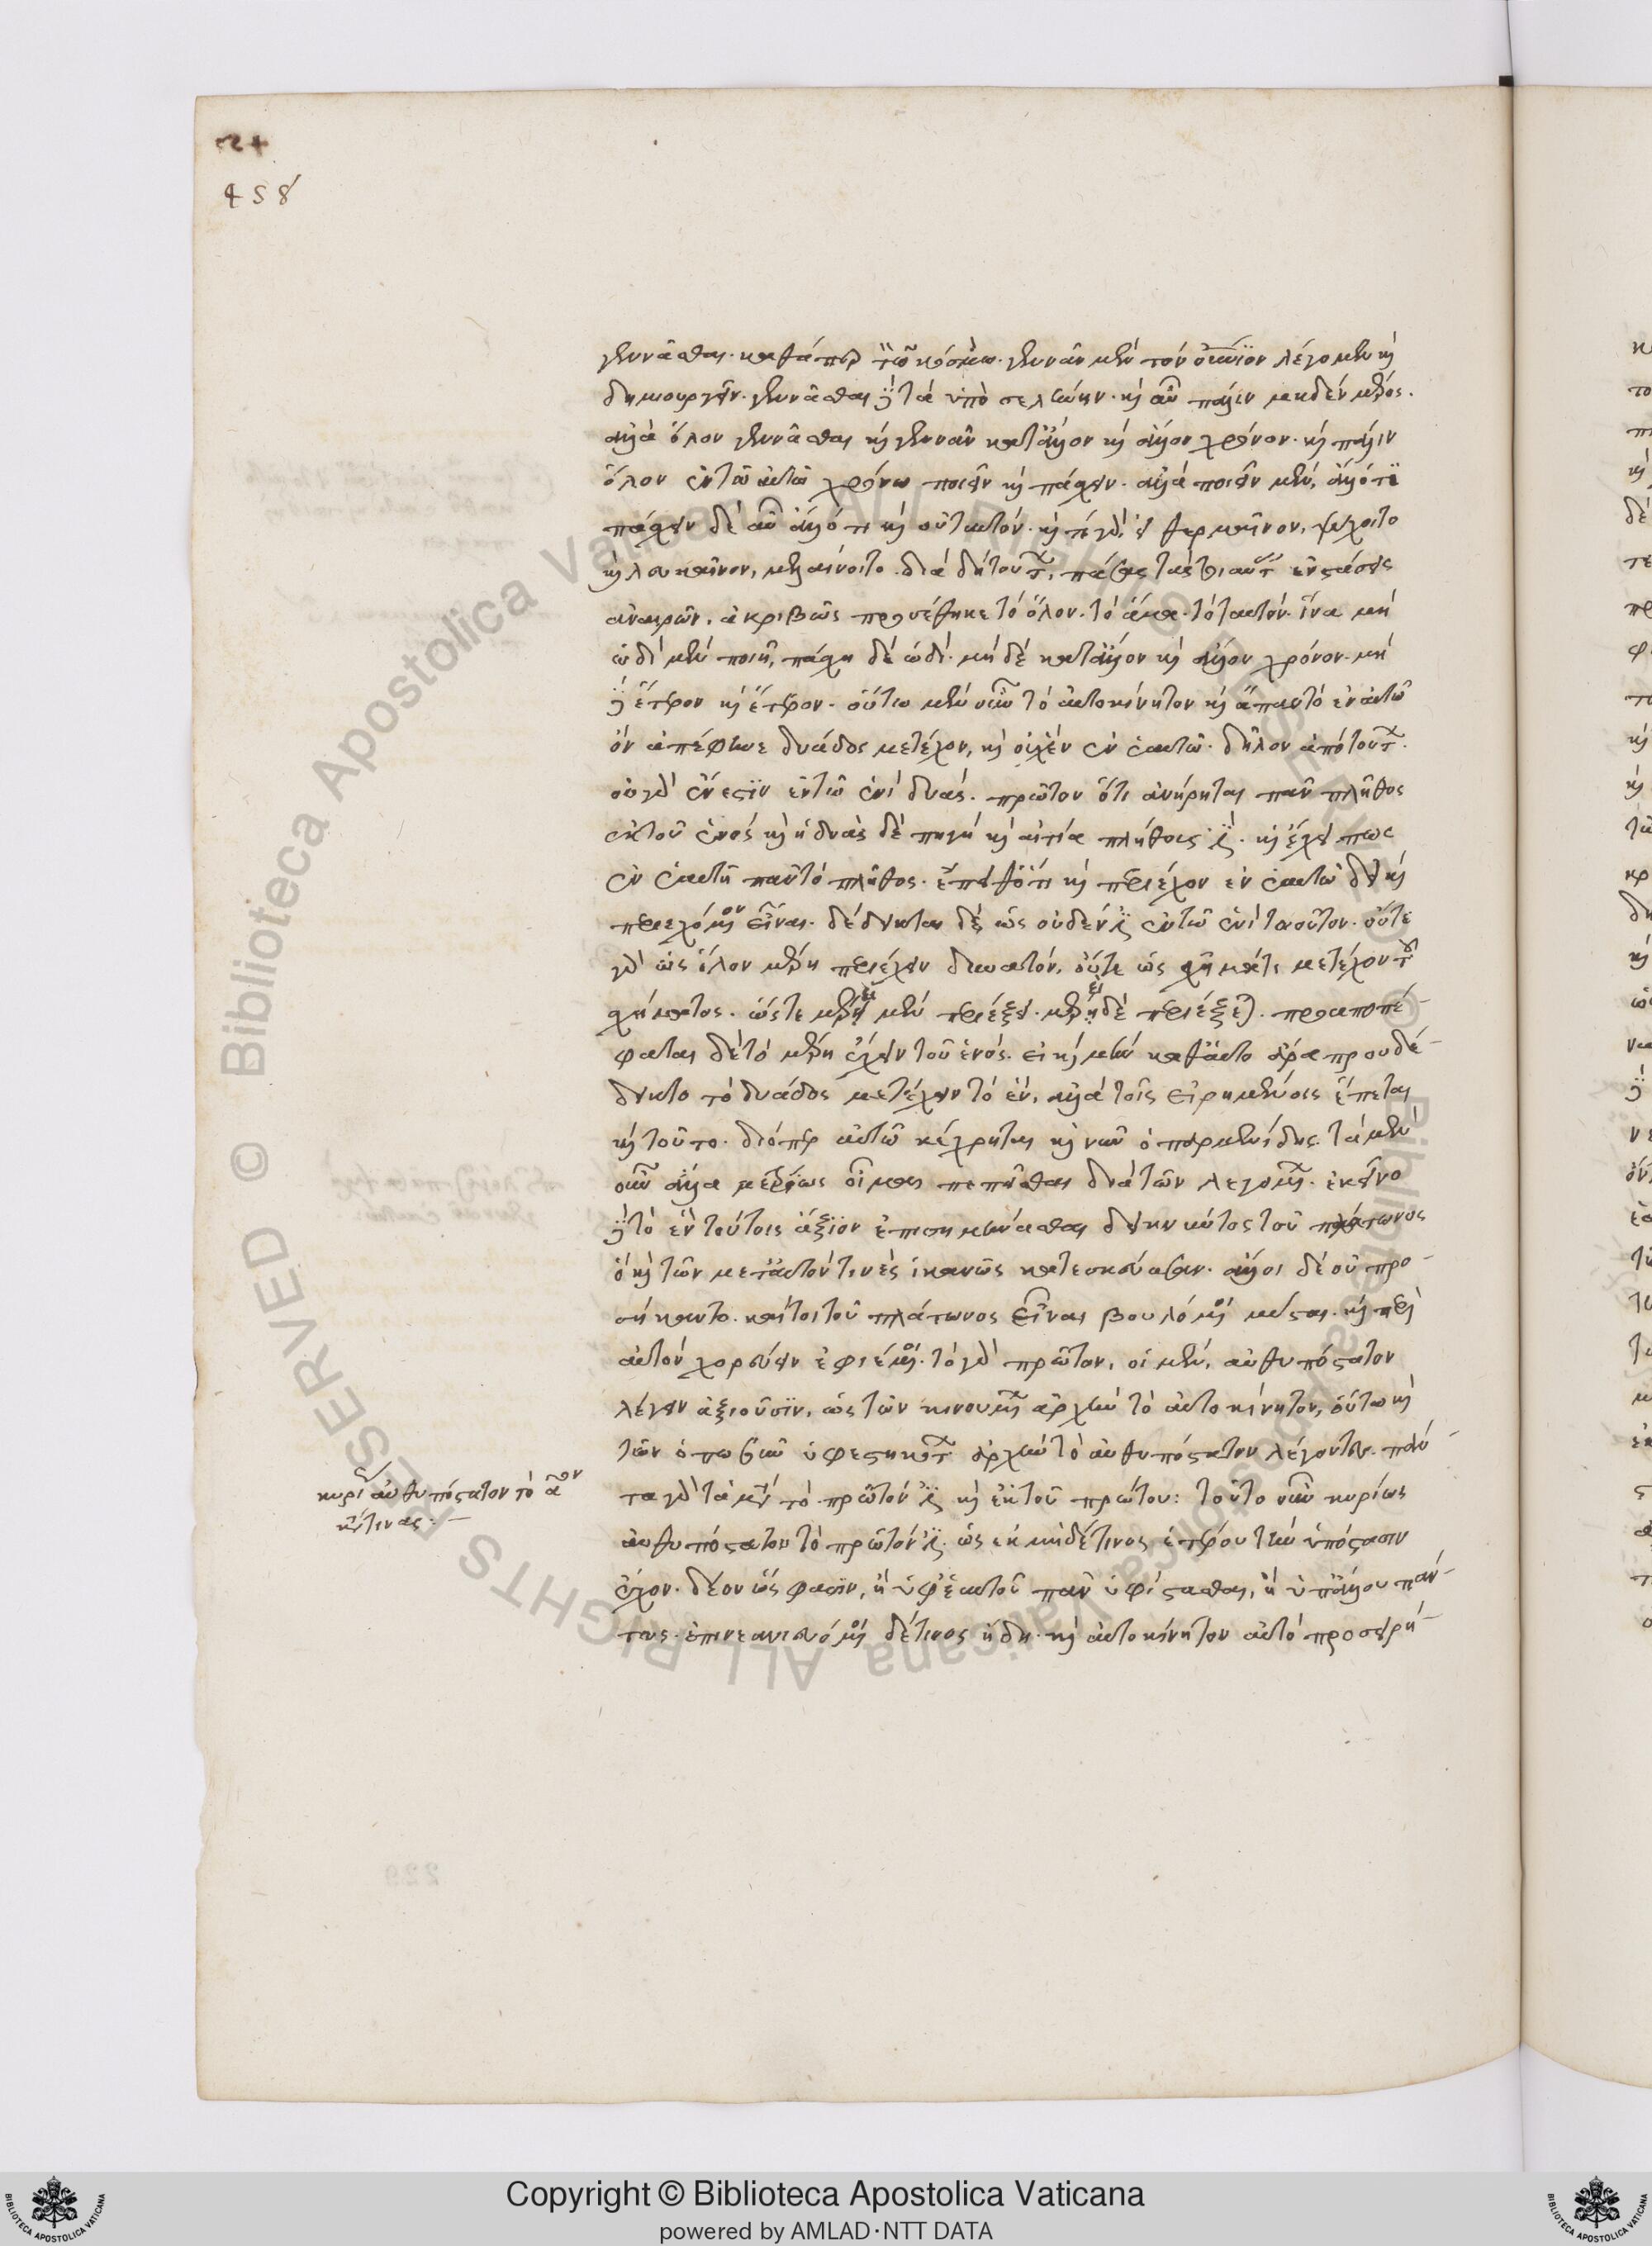 458
γεννᾶσθαι. καθάπερ τῷ κόσμῳ. γεννᾶν μὲν τὸν οὐρανὸν λέγομεν καὶ
δημιουργεῖν. γεννᾶσθαι δὲ τὰ ὑπὸ σελήνην. καὶ αὖ πάλιν μηδὲν μέρος.
ἀλλὰ ὅλον γεννᾶσθαι καὶ γεννᾶν κατ' ἄλλον καὶ ἄλλον χρόνον. καὶ πάλιν
ὅλον ἐν τῷ αὐτῷ χρόνῳ ποιεῖν καὶ πάσχειν. ἀλλὰ ποιεῖν μὲν, ἄλλό τι
πάσχειν δὲ αὖ ἄλλό τι καὶ οὐ ταὐτόν. καὶ τί γὰρ εἰ θερμαῖνον, ψύχοιτο
καὶ λευκαῖνον, μελαίνοιτο. διὰ δὴ τοῦτο, πάσας τὰς τοιαύτας ἐνστάσεις
ἀναιρῶν, ἀκριβῶς προσέθηκε τὸ ὅλον. τὸ ἅμα. τὸ ταυτόν. ἵνα μὴ
ὡδὶ μὲν ποιῇ, πάσχῃ δὲ ὡδί. μὴ δὲ κατ' ἄλλον καὶ ἄλλον χρόνον. μὴ
δὲ ἕτερον καὶ ἕτερον. οὕτω μὲν οὖν τὸ αὐτοκίνητον καὶ ἅπαν τὸ ἐν αὑτῷ
ὂν ἀπέφηνε δυάδος μετέχον, καὶ οὐχ ἓν ἐν ἑαυτῷ. δῆλον ἀπὸ τούτων.
οὐ γὰρ ἔνεστιν ἐν τῷ ἑνὶ δυάς. πρῶτον ὅτι ἀνῄρηται πᾶν πλῆθος
ἐκ τοῦ ἑνός καὶ ἡ δυὰς δὲ πηγὴ καὶ αἰτία πλήθους ἐστί. καὶ ἔχει πως
ἐν ἑαυτῇ πᾶν τὸ πλῆθος. ἔπειθ' ὅτι καὶ περιέχον ἐν ἑαυτῷ δεῖ καὶ
περιεχόμενον εἶναι. δέδεικται δὲ ὡς οὐδέν ἐστιν ἐν τῷ ἑνὶ τοιοῦτον. οὔτε
γὰρ ὡς ὅλον μέρη περιέχειν δυνατόν, οὔτε ὡς σχήματι μετέχον τοῦ
σχήματος. ὥστε μέρει μὲν περιέξει. μέρει δὲ περιέξεται. προαποπέ-
φαται δὲ τὸ μέρη ἔχειν τοῦ ἑνός. εἰ καὶ μὴ καθ' αὑτὸ ἄρα προυδέ-
δεικτο τὸ δυάδος μετέχειν τὸ ἕν, ἀλλὰ τοῖς εἰρημένοις ἕπεται
καὶ τοῦτο. διόπερ αὐτῷ κέχρηται καὶ νῦν ὁ παρμενίδης. τὰ μὲν
οὖν ἄλλα μετρίως οἶμαι πεπεῖσθαι διὰ τῶν λεγομένων. ἐκεῖνο
δὲ τὸ ἐν τούτοις ἄξιον ἐπισημήνασθαι δεικνύτος τοῦ πλάτωνος
ὃ καὶ τῶν μετ' αὐτόν τινὲς ἱκανῶς κατεσκεύασαν. ἄλλοι δὲ οὐ προ-
σήκαντο. καίτοι τοῦ πλάτωνος εἶναι βουλόμενοι μύσται. καὶ περὶ
αὐτὸν χορεύειν ἐφιέμενοι. τὸ γὰρ πρῶτον, οἱ μὲν, αὐθυπόστατον
λέγειν ἀξιοῦσιν, ὡς τῶν κινουμένων ἀρχὴν τὸ αὐτοκίνητον, οὕτω καὶ
τῶν ὁπωσοῦν ὑφεστηκότων ἀρχὴν τὸ αὐθυπόστατον λέγοντες. πάν-
τα γὰρ τὰ μετὰ τὸ πρῶτόν ἐστι καὶ ἐκ τοῦ πρώτου: τοῦτο οὖν κυρίως
αὐθυπόστατον τὸ πρῶτόν ἐστι. ὡς ἐκ μηδέτινος ἑτέρου τὴν ὑπόστασιν
ἔχον. δέον ὥς φασιν, ἢ ὑφ' ἑαυτοῦ πᾶν ὑφίστασθαι, ἢ ὑπ' ἄλλου πάν-
τως. ἐπινεανιευόμενοι δέ τινες ἤδη. καὶ αὐτοκίνητον αὐτὸ προσειρή-
κυρίως αὐθυπόστατον τὸ αον
κατά τινας: